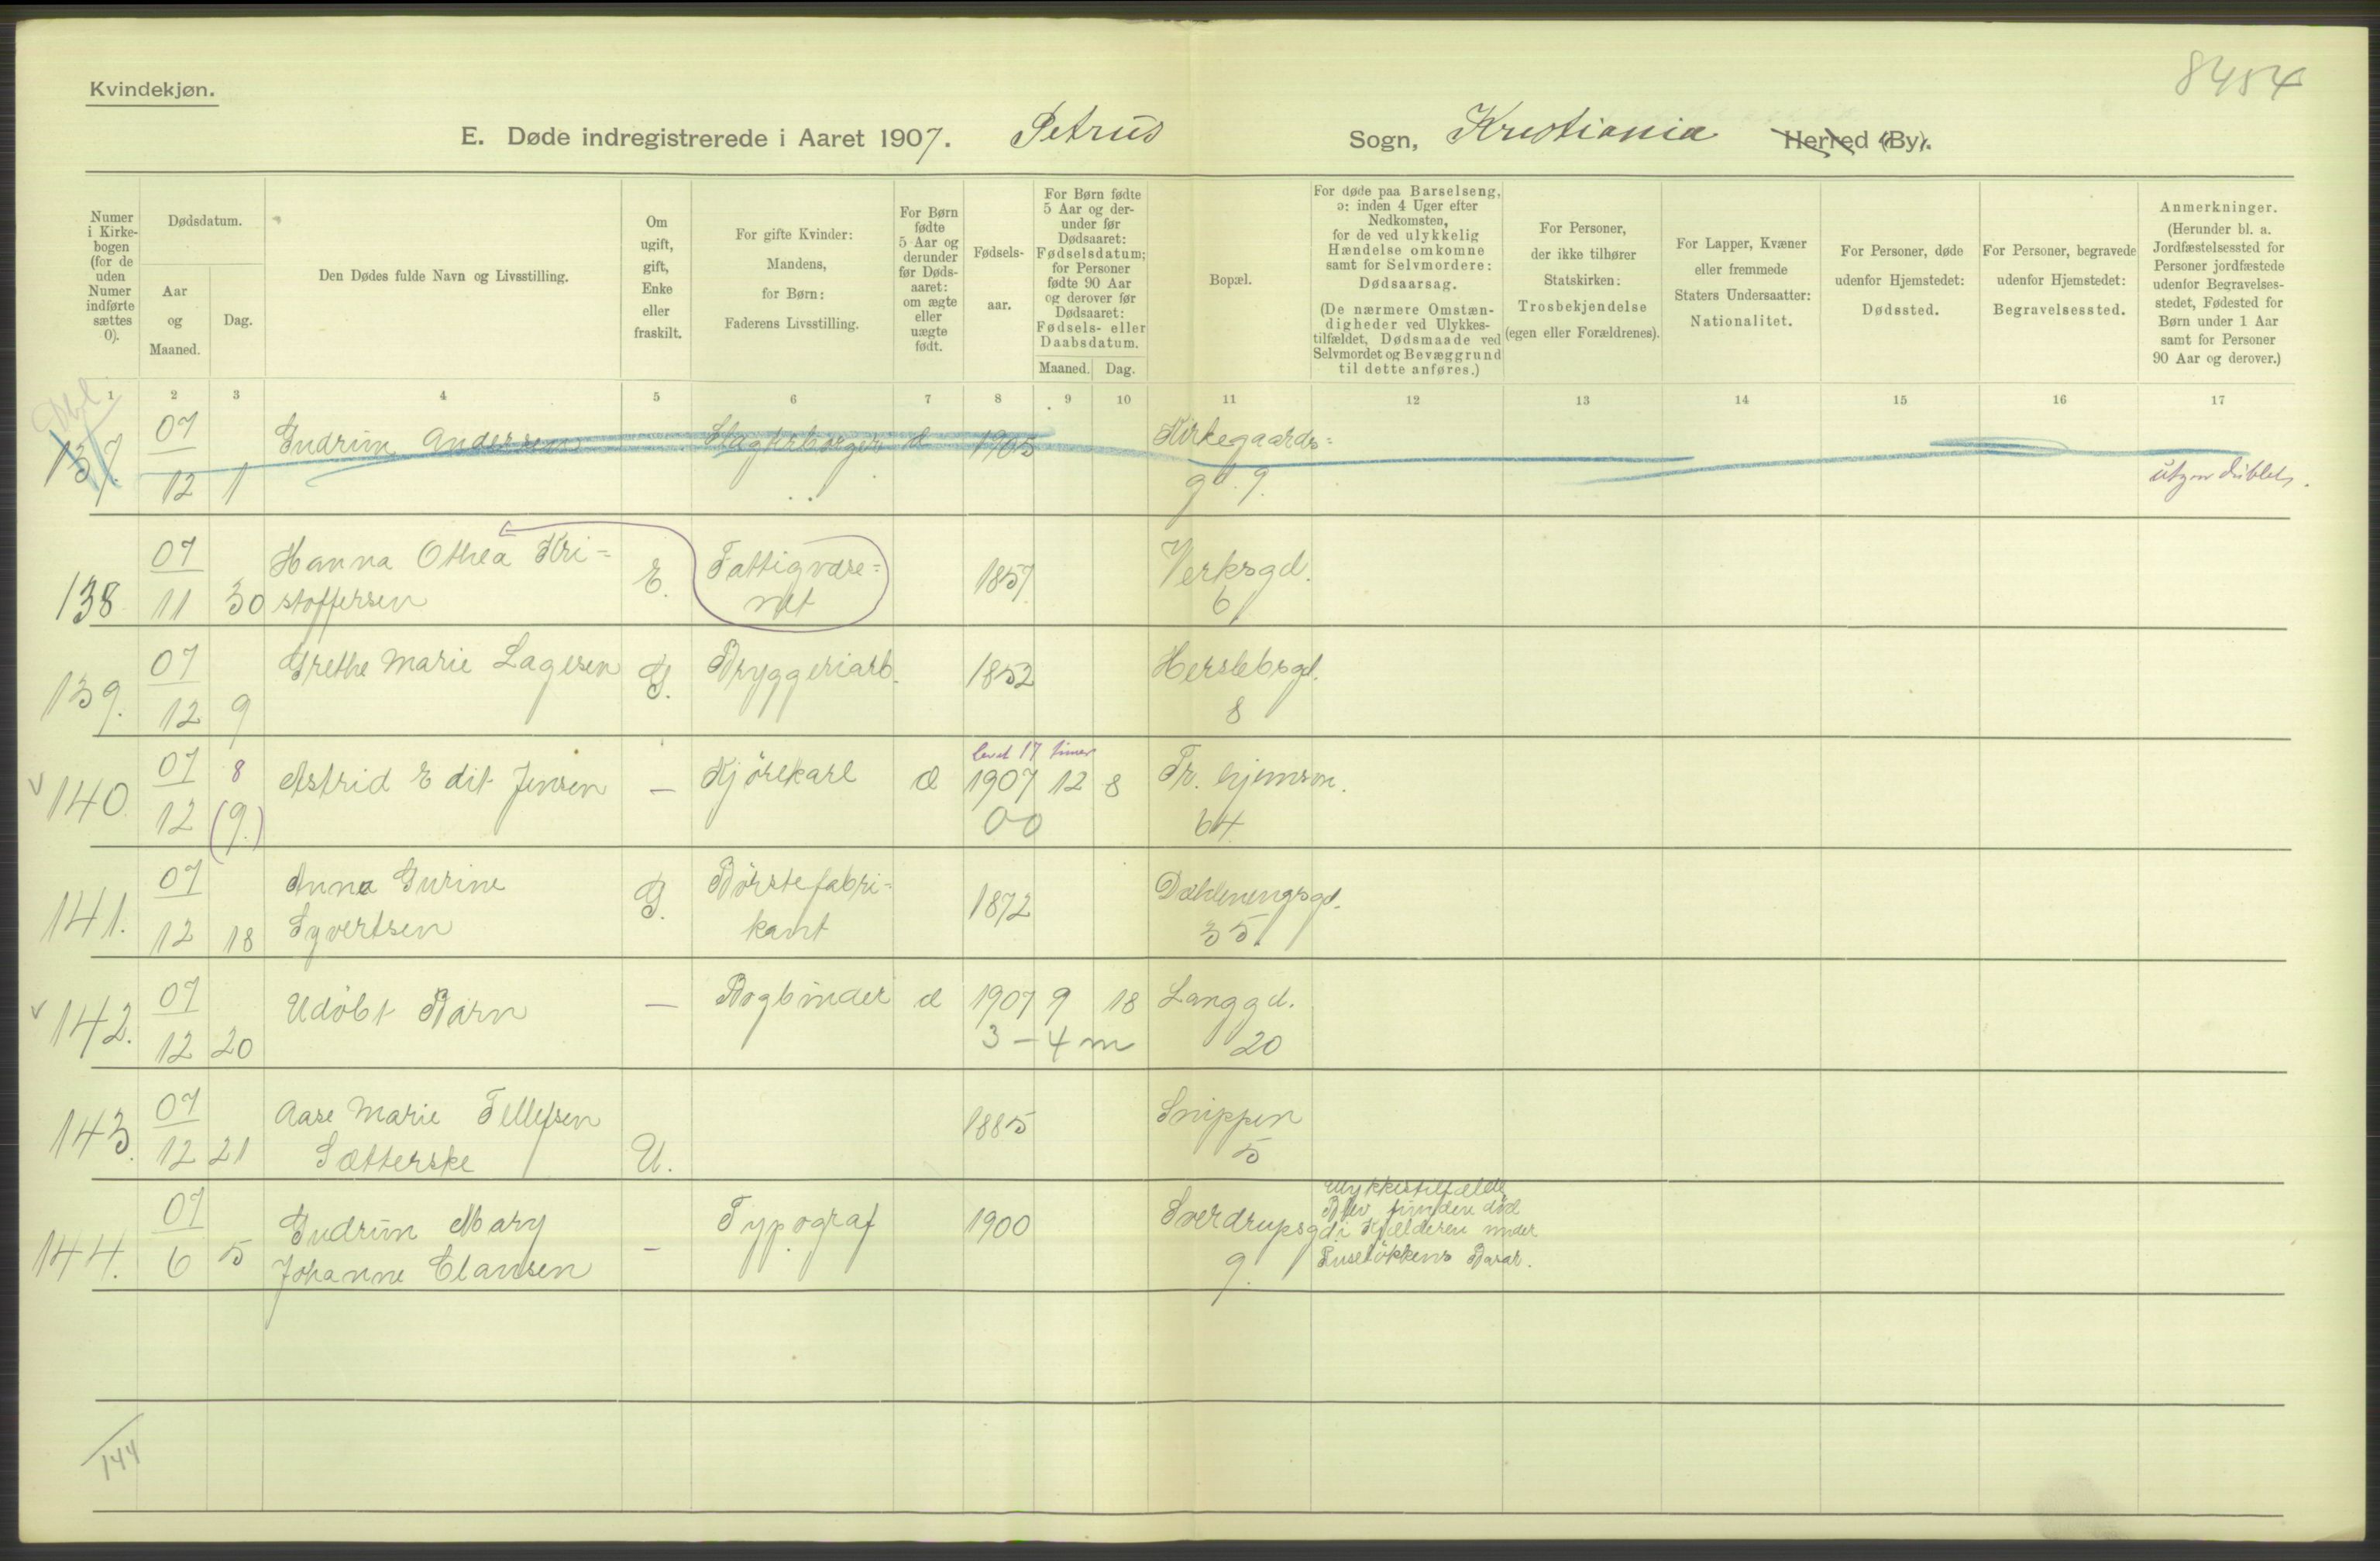 8454
Kvindekjøn.
E. Døde indregistrerede i Aaret 1907. Petrus Sogn, Kristiania Herred (By).
Numer i Kirkebogen (for de uden Numer indførte sættes 0).
Dødsdatum.
Aar og Maaned.
Dag.
Den Dødes fulde Navn og Livsstilling.
Om ugift, gift, Enke eller fraskilt.
For gifte Kvinder: Mandens, for Børn: Faderens Livsstilling.
For Børn fødte 5 Aar og derunder før Dødsaaret: om ægte eller uægte født.
Fødselsaar.
For Børn fødte 5 Aar og derunder før Dødsaaret: Fødselsdatum; for Personer fødte 90 Aar og derover før Dødsaaret: Fødsels- eller Daabsdatum.
Maaned. Dag.
Bopæl.
For døde paa Barselseng, ɔ: inden 4 Uger efter Nedkomsten, for de ved ulykkelig Hændelse omkomne samt for Selvmordere: Dødsaarsag.
(De nærmere Omstændigheder ved Ulykkestilfældet, Dødsmaade ved Selvmordet og Bevæggrund til dette anføres.)
For Personer, der ikke tilhører Statskirken: Trosbekjendelse (egen eller Forældrenes).
For Lapper, Kvæner eller fremmede Staters Undersaatter: Nationalitet.
For Personer, døde udenfor Hjemstedet: Dødssted.
For Personer, begravede udenfor Hjemstedet: Begravelsessted.
Anmerkninger.
(Herunder bl. a. Jordfæstelsessted for Personer jordfæstede udenfor Begravelsesstedet, Fødested for Børn under 1 Aar samt for Personer 90 Aar og derover.)
1 2 3 4 5 6 7 8 9 10 11 12 13 14 15 16 17
137. 07 12 1 Gudrun Andersen æ 1905 Kirkegaards=
gd. 9.
138 07 11 30 Hanna Othea Kri=
stoffersen E. Fattigvæse=
net 1857 Verksgd.
6
139. 07 12 9 Grethe Marie Lagesen G. Bryggeriarb. 1852 Herslebsgd.
8
levet 17 timer
140. 07 12 8 (9.) Astrid Edit Jensen — Kjørekarl æ 1907 12 8 Tr. hjemsvn.
00 64
141. 07 12 18 Anna Gurine
Syvertsen G. Børstefabri=
kant 1872 Dæhlenengsgd.
35
142. 07 12 20 Udøbt Barn — Bogbinder æ 1907 9 18 Langgd.
3 - 4 m 20
143. 07 12 21 Aase Marie Tellefsen
Sætterske U. 1885 Snippen
5
144. 07 6 5 Gudrun Mary
Johanne Clausen - Typograf 1900 Sverdrupsgd.
9.
Ulykkestilfælde
Blev funden død
i Kjælderen under
Tuseløkkens Basar.
144